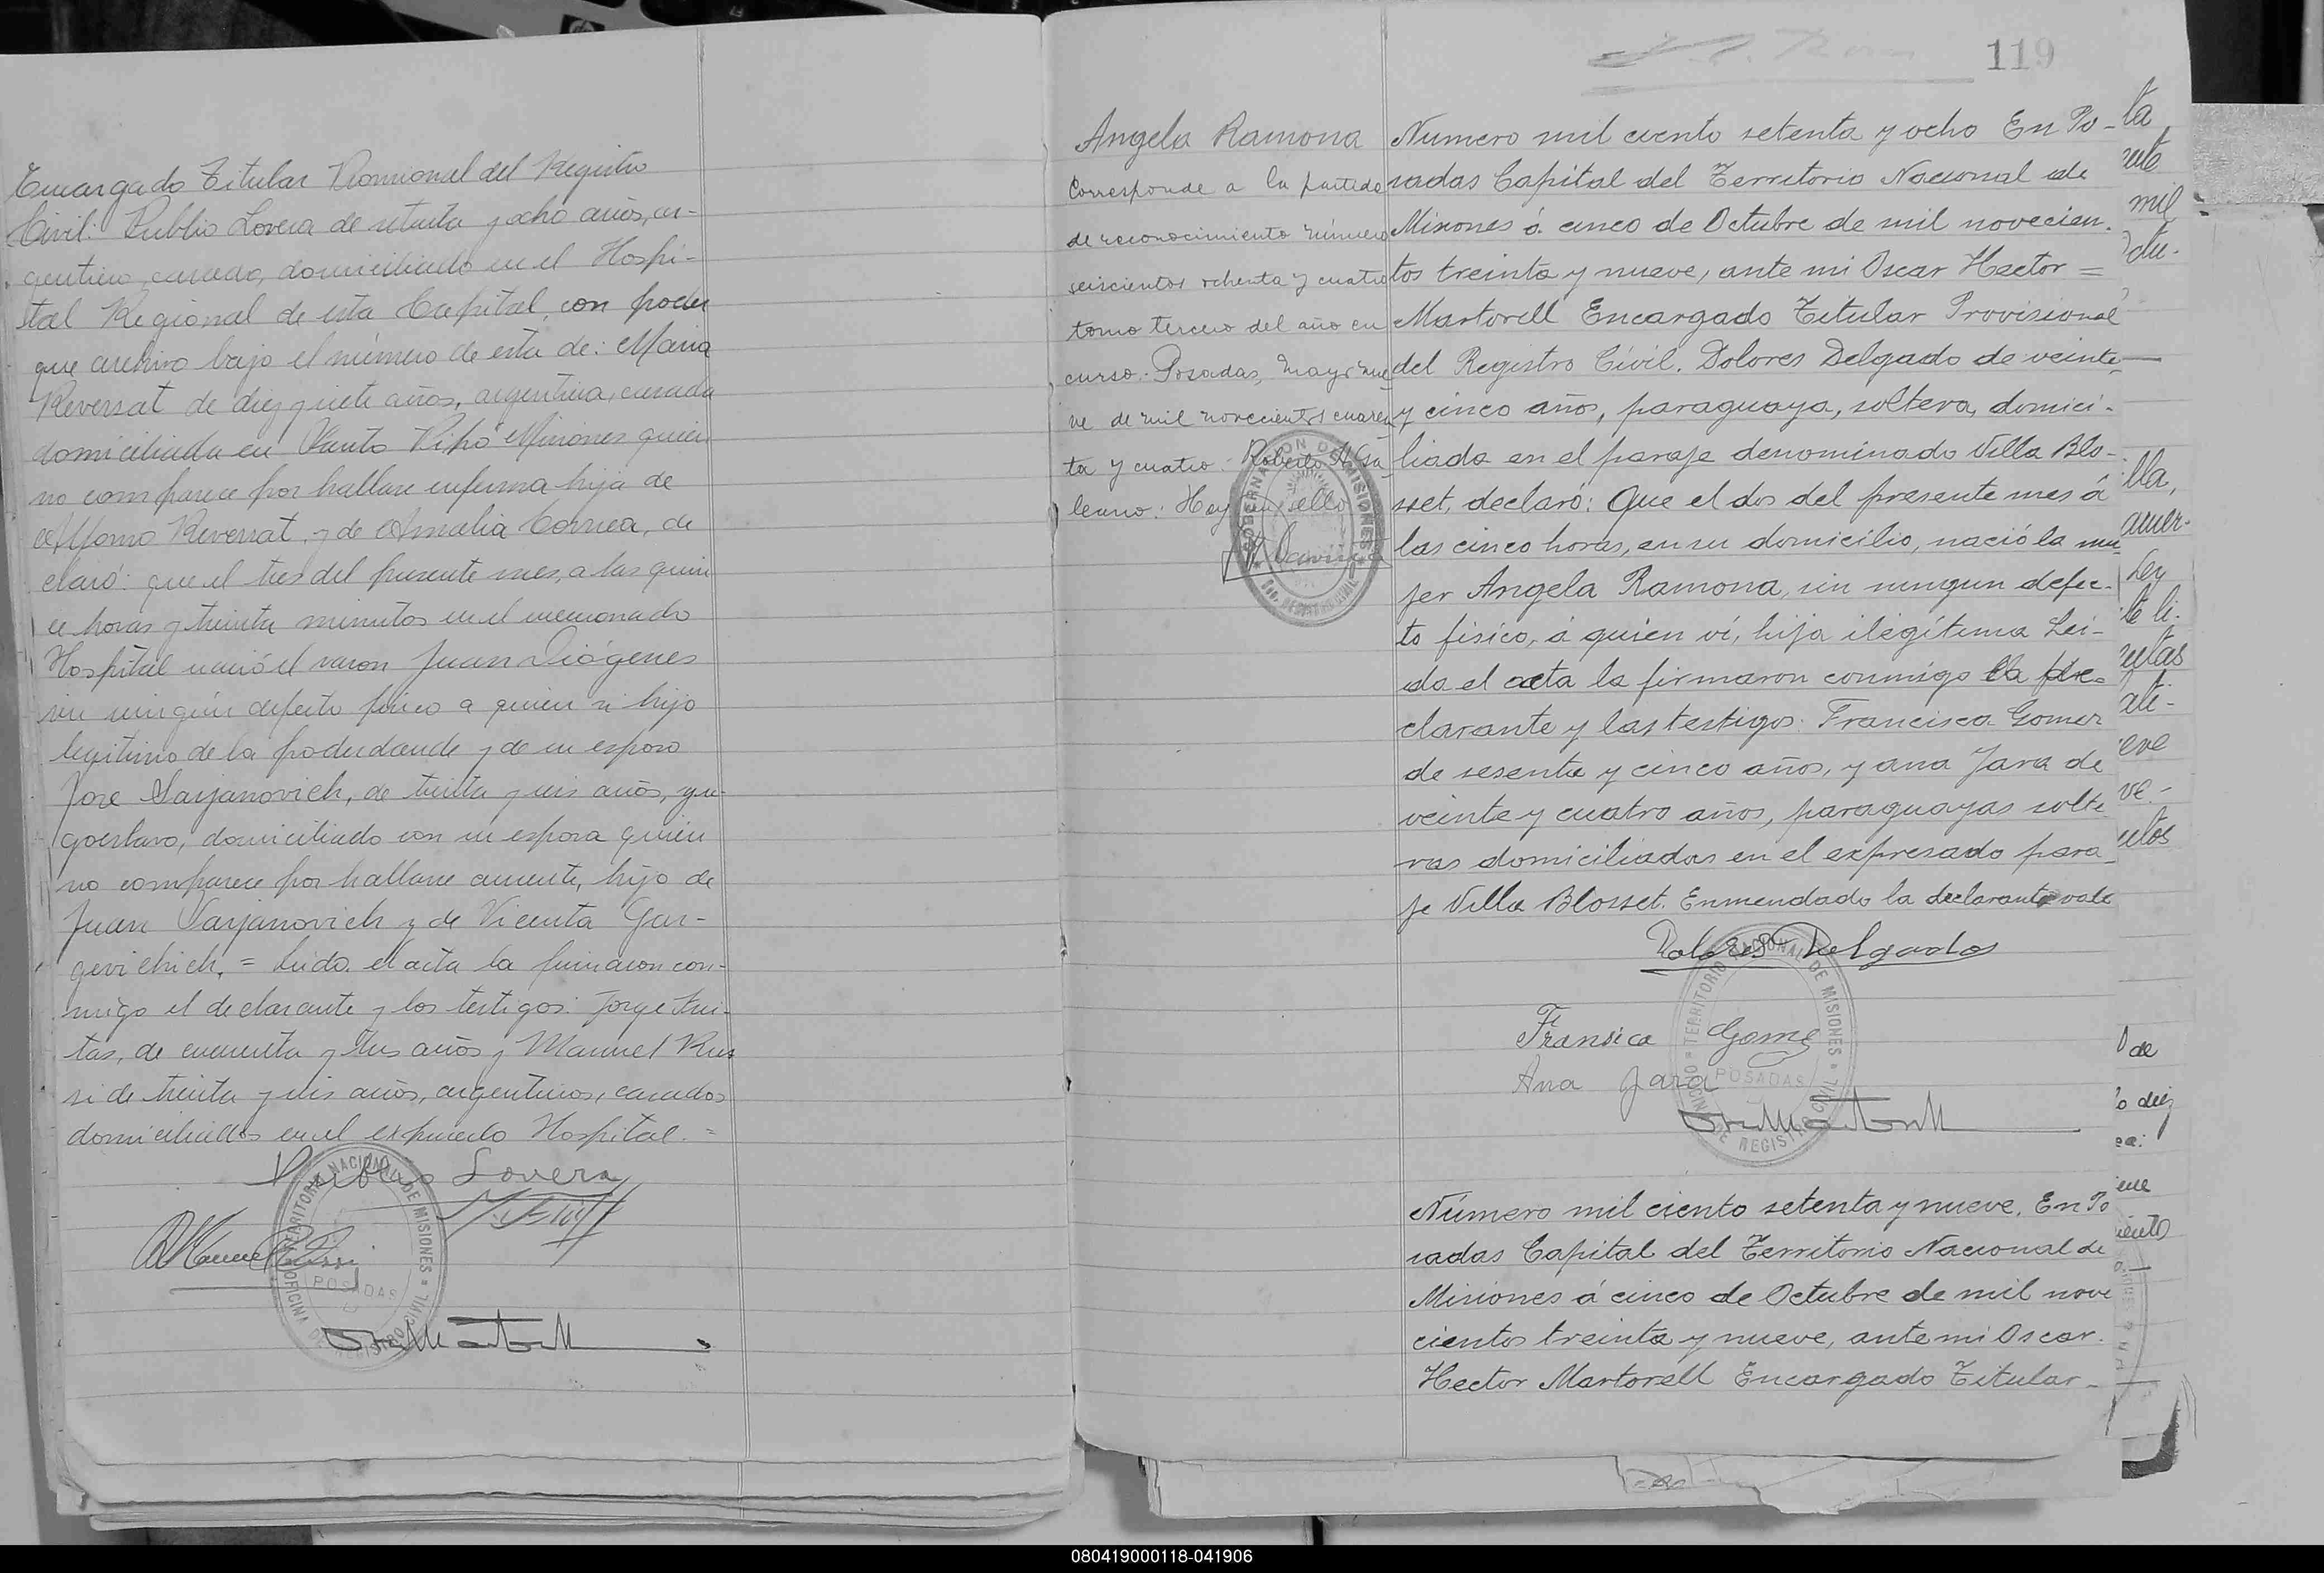 Encargado Titular Provisional del Registro
Civil: Publio Lovera de setenta y ocho años, ar-
gentino, casado, domiciliado en el Hospi-
tal Regional de esta Capital, con poder
que archivo bajo el número de esta de: Maria
Reversat de diez y siete años, argentina, casada
domiciliada en Santo Pipó Misiones quien
no comparece por hallarse enferma hija de
Alfonso Reversat, y de Amalia Correa, de
claró: que el tres del presente mes, a las quin
ce horas y treinta minutos en el mencionado
Hospital nació el varon Juan Diógenes
sin ningún defecto físico a quien vi hijo
legitimo de la poderdante y de su esposo
Jose Sarjanovich, de treinta y seis años, yu-
goeslavo, domiciliado con su esposa quien
no comparece por hallarse ausente, hijo de
Juan Sarjanovich y de Vicenta Gar-
gevichich, = Leida el acta la firmaron con-
migo el declarante y los testigos: Jorge
tas, de cincuenta y tres años y Manuel Rus
si de treinta y seis años, argentinos, casados
domiciliados en el expresado Hospital. =
Publio Lovera
Manuel Russi
OFICINA DE REGISTRO CIVIL = TERRITORIO NACIONAL DE MISIONES =
POSADAS
119
Angela Ramona
Corresponde a la partida
de reconocimiento número
seiscientos ochenta y cuatro
tomo tercero del año en
curso. Posadas, Mayo nue
ve de mil novecientos cuaren
ta y cuatro. Roberto
leano: Hay un sello
GOBERNACION DE MISIONES
Numero mil ciento setenta y ocho En Po-
sadas Capital del Territorio Nacional de
Misiones á cinco de Octubre de mil novecien.
tos treinta y nueve, ante mi Oscar Hector =
Martorell Encargado Titular Provisional
del Registro Civil. Dolores Delgado de veinte
y cinco años, paraguaya, soltera, domici-
liada en el paraje denominado Villa Blo-
sset, declaró: Que el dos del presente mes á
las cinco horas, en su domicilio, nació la mu
jer Angela Ramona, sin ningun defec-
to físico, á quien ví, hija ilegítima Lei-
da el acta la firmaron conmigo la de-
clarante y las testigos: Francisca Gomez
de sesenta y cinco años, y Ana Jara de
veinte y cuatro años, paraguayas solte
ras domiciliadas en el expresado para-
je Villa Blosset. Enmendado la declarante vale
Dolores Delgado
Fransica Gomez
Ana Jara
OFICINA DE REGISTRO CIVIL = TERRITORIO NACIONAL DE MISIONES =
POSADAS
Número mil ciento setenta y nueve. En Po
sadas Capital del Territorio Nacional de
Misiones á cinco de Octubre de mil nove
cientos treinta y nueve, ante mi Oscar.
Hector Martorell Encargado Titular-
080419000118-041906